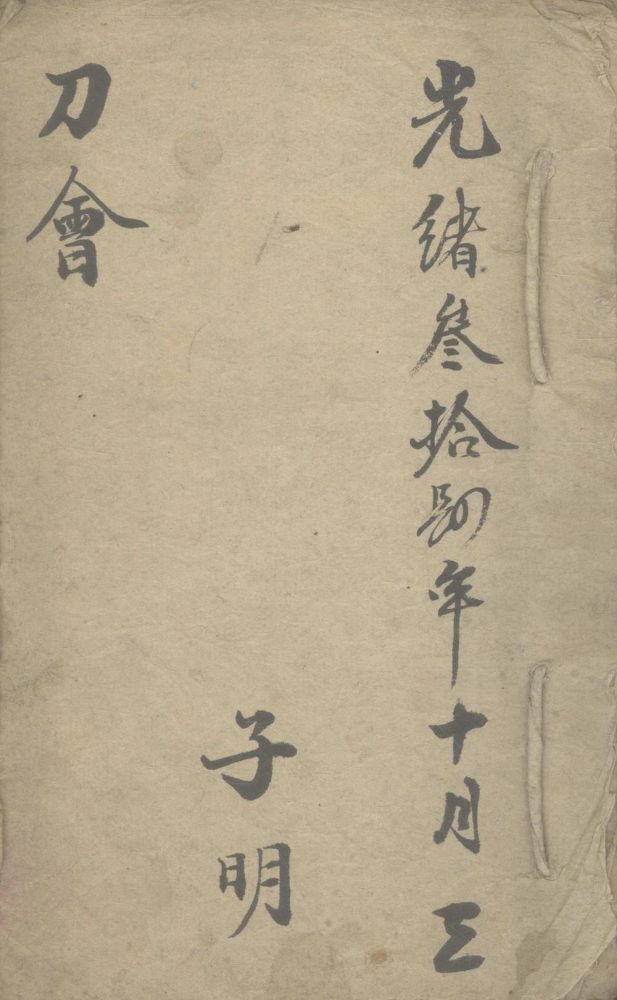 光緒叁拾肆年十月立
子明
刀會